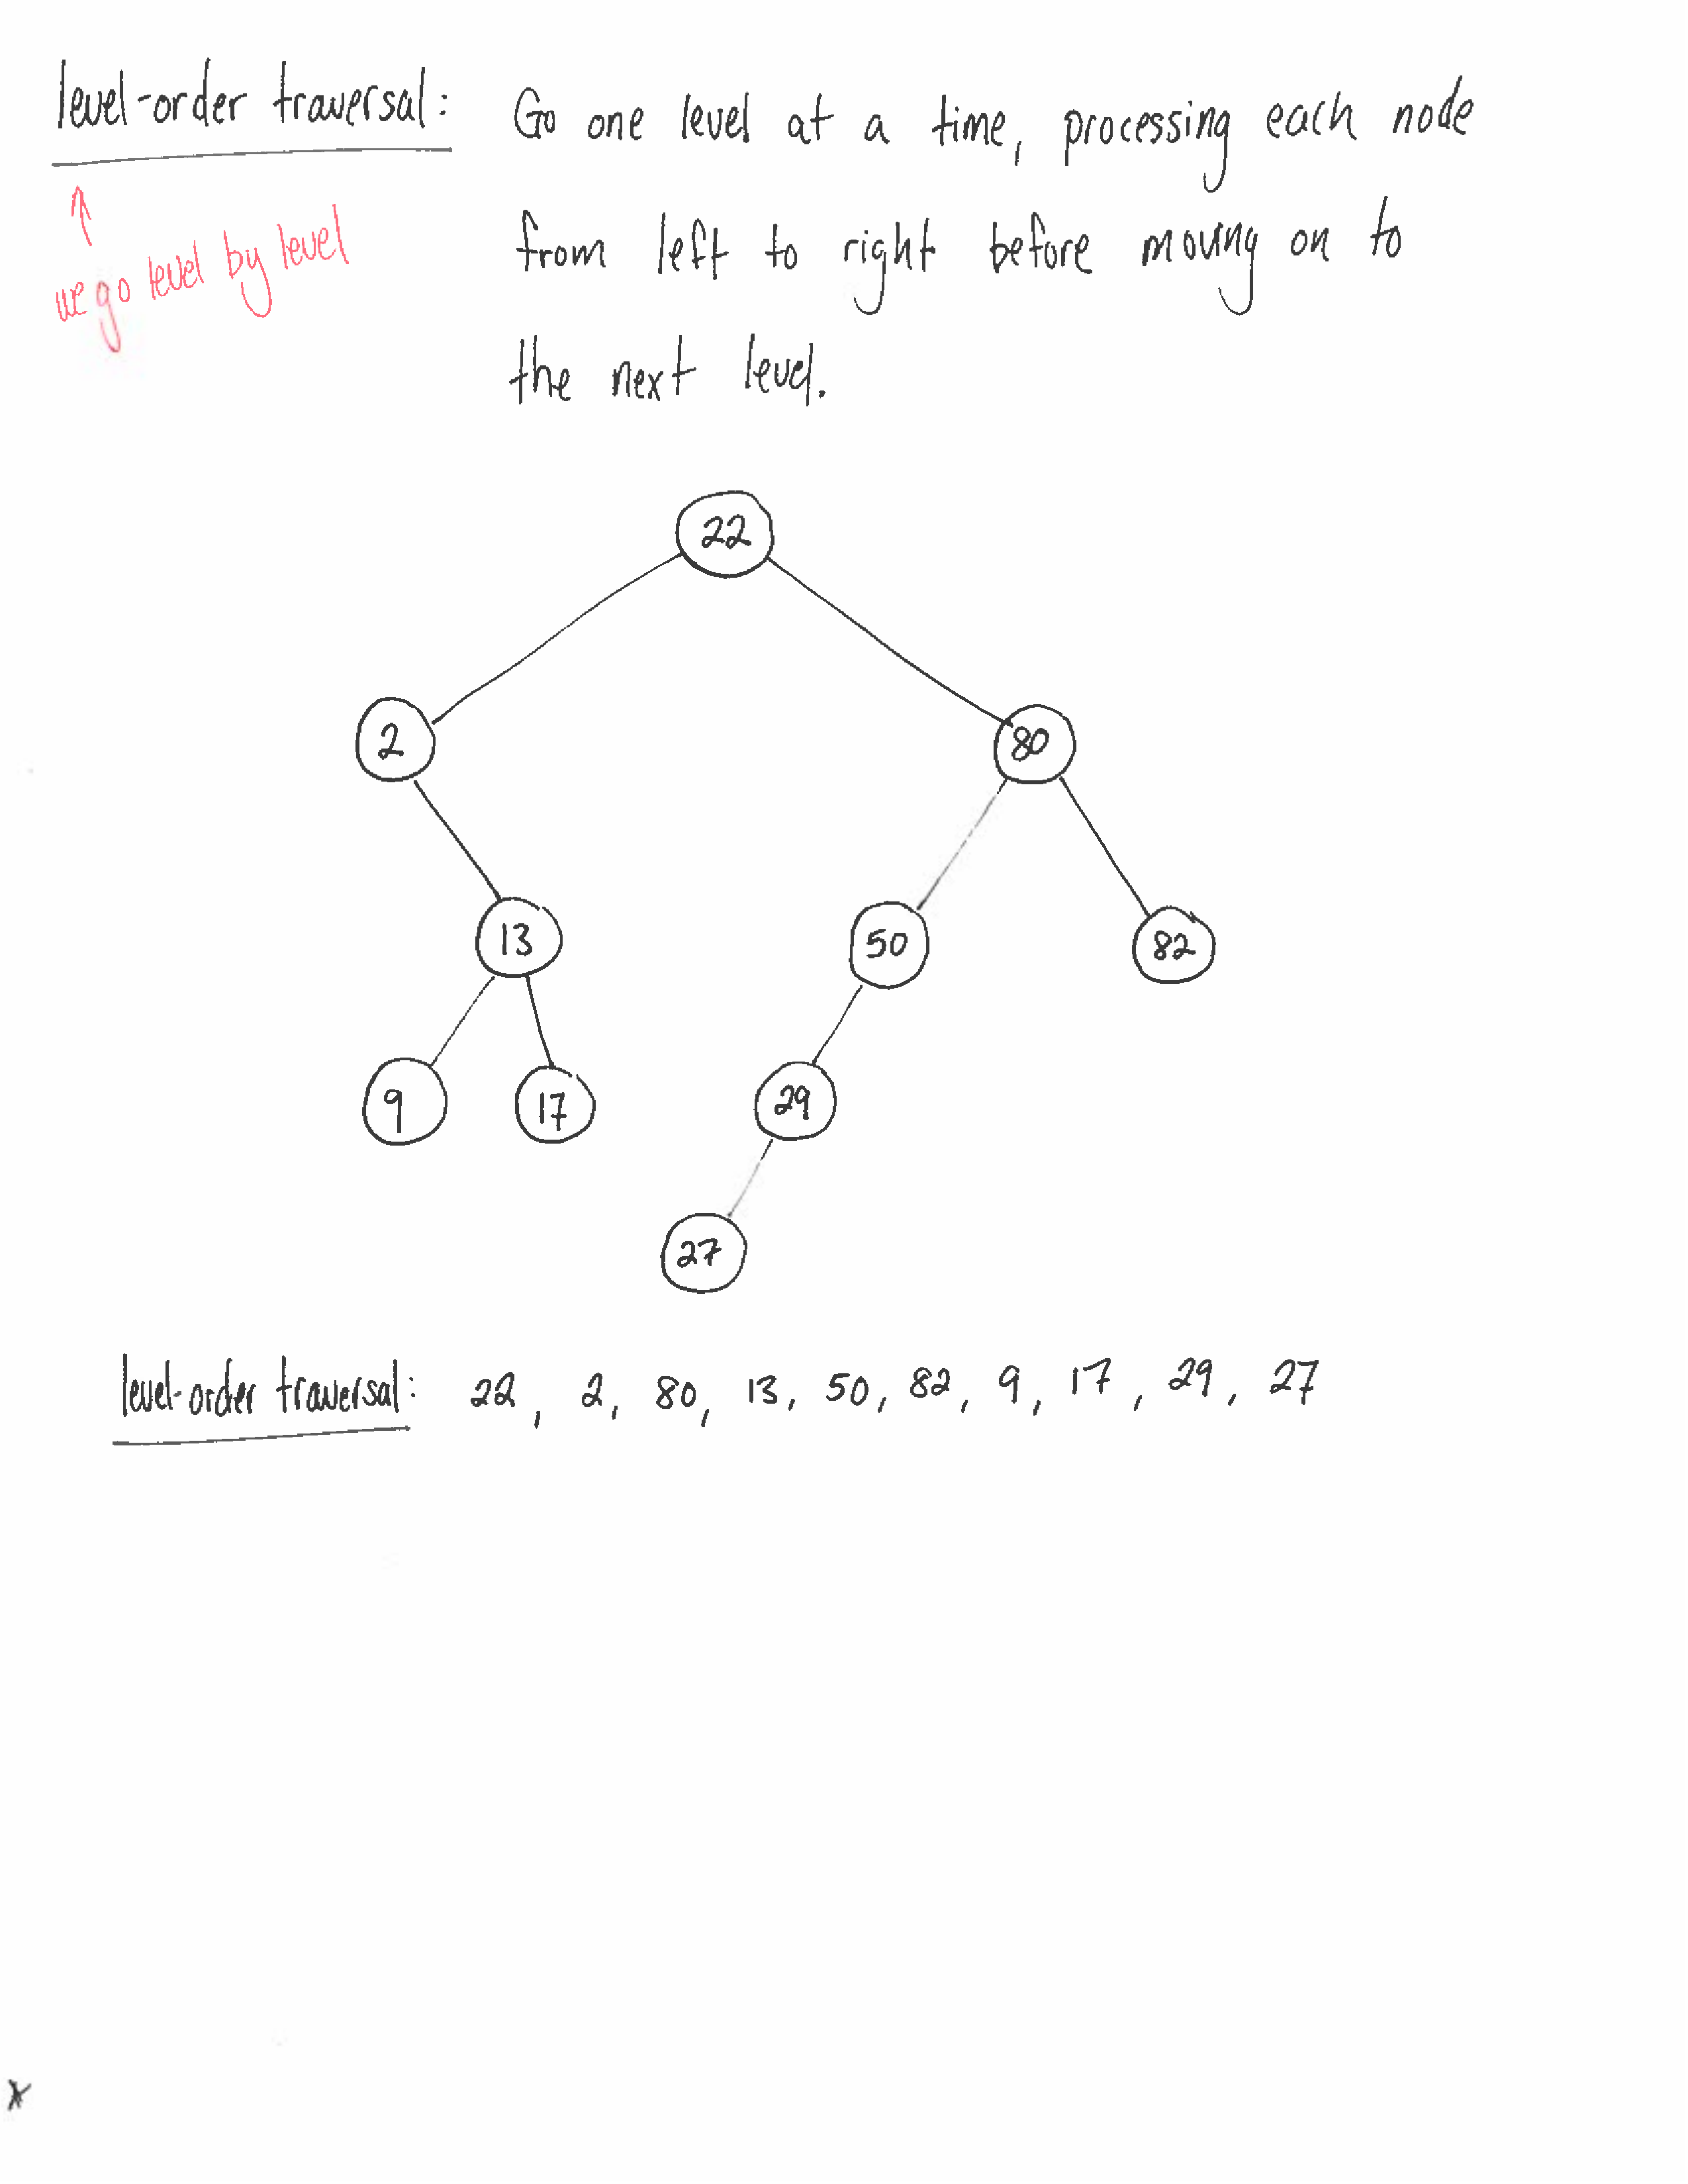 level-order traversal: Go one level at a time, processing each node
↑
we go level by level
from left to right before moving on to
the next level.
22
2 80
13 50 82
9 17 29
27
level-order traversal: 22, 2, 80, 13, 50, 82, 9, 17, 29, 27
x